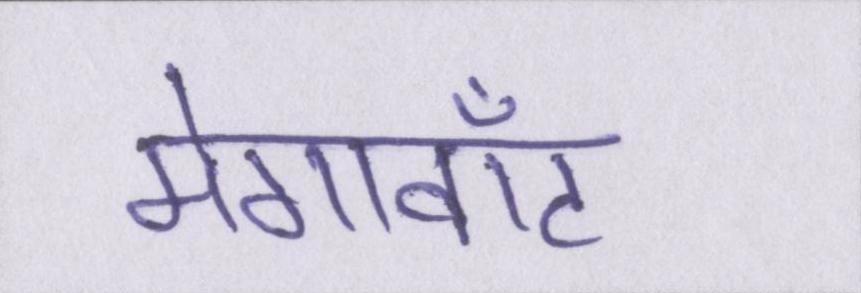 मेगावाँट